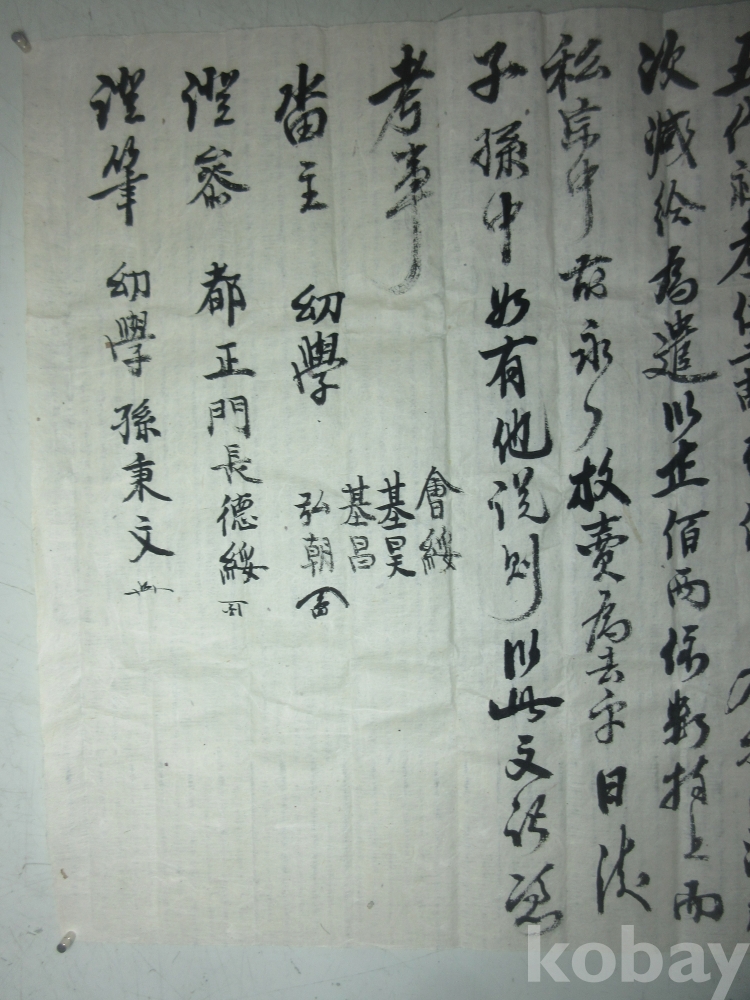 五代祖考位
次減給爲遣以正佰兩依數捧上而
私宗中前永永放賣爲去乎日後
子孫中如有他說則以此文記憑
考事
畓主 幼學 會綏
基昊
基昌
弘朝
證參 都正門長德綏
證筆 幼學孫秉文
kobay